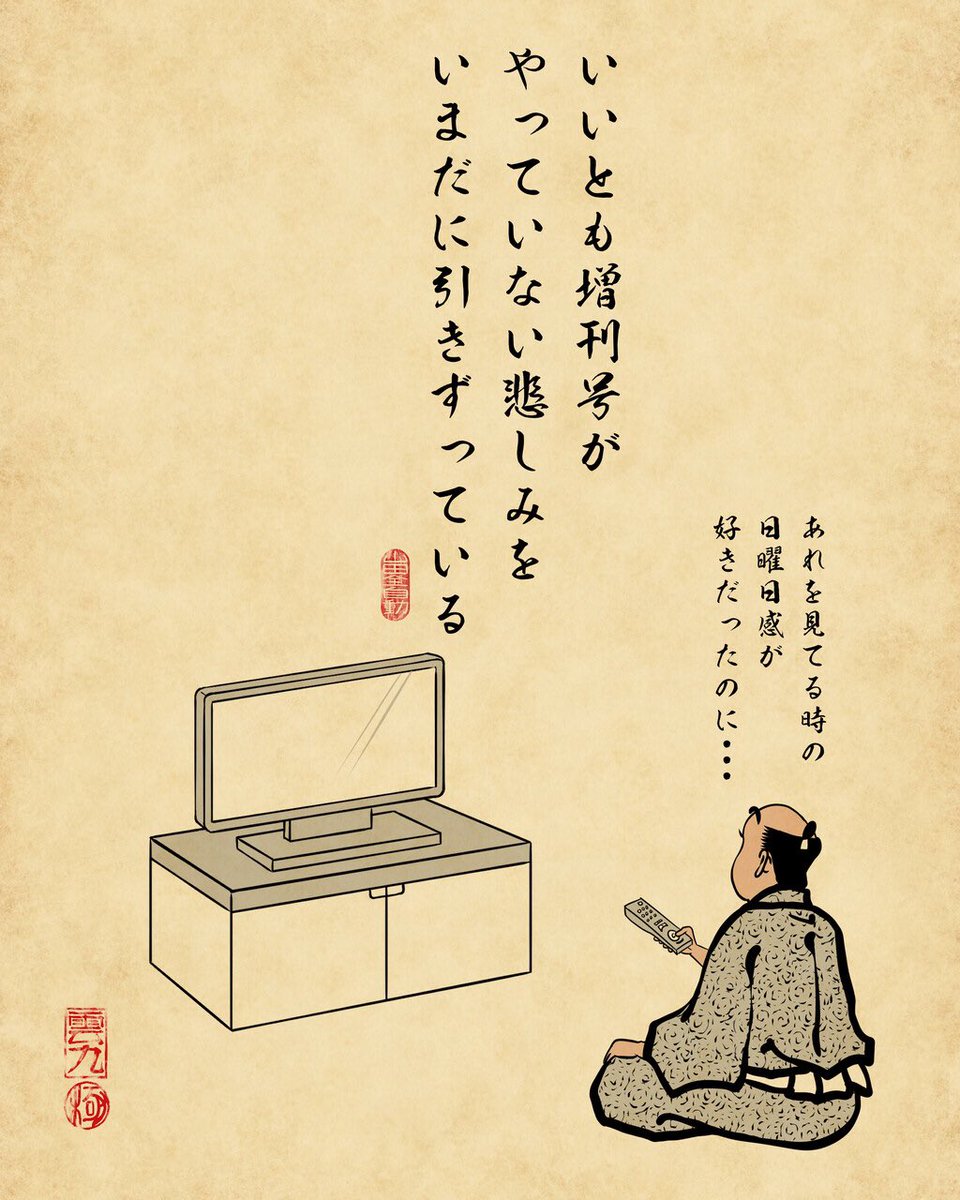 いいとも増刊号が
やっていない悲しみを
いまだに引きずっている
あれを見てる時の
日曜日感が
好きだったのに・・・